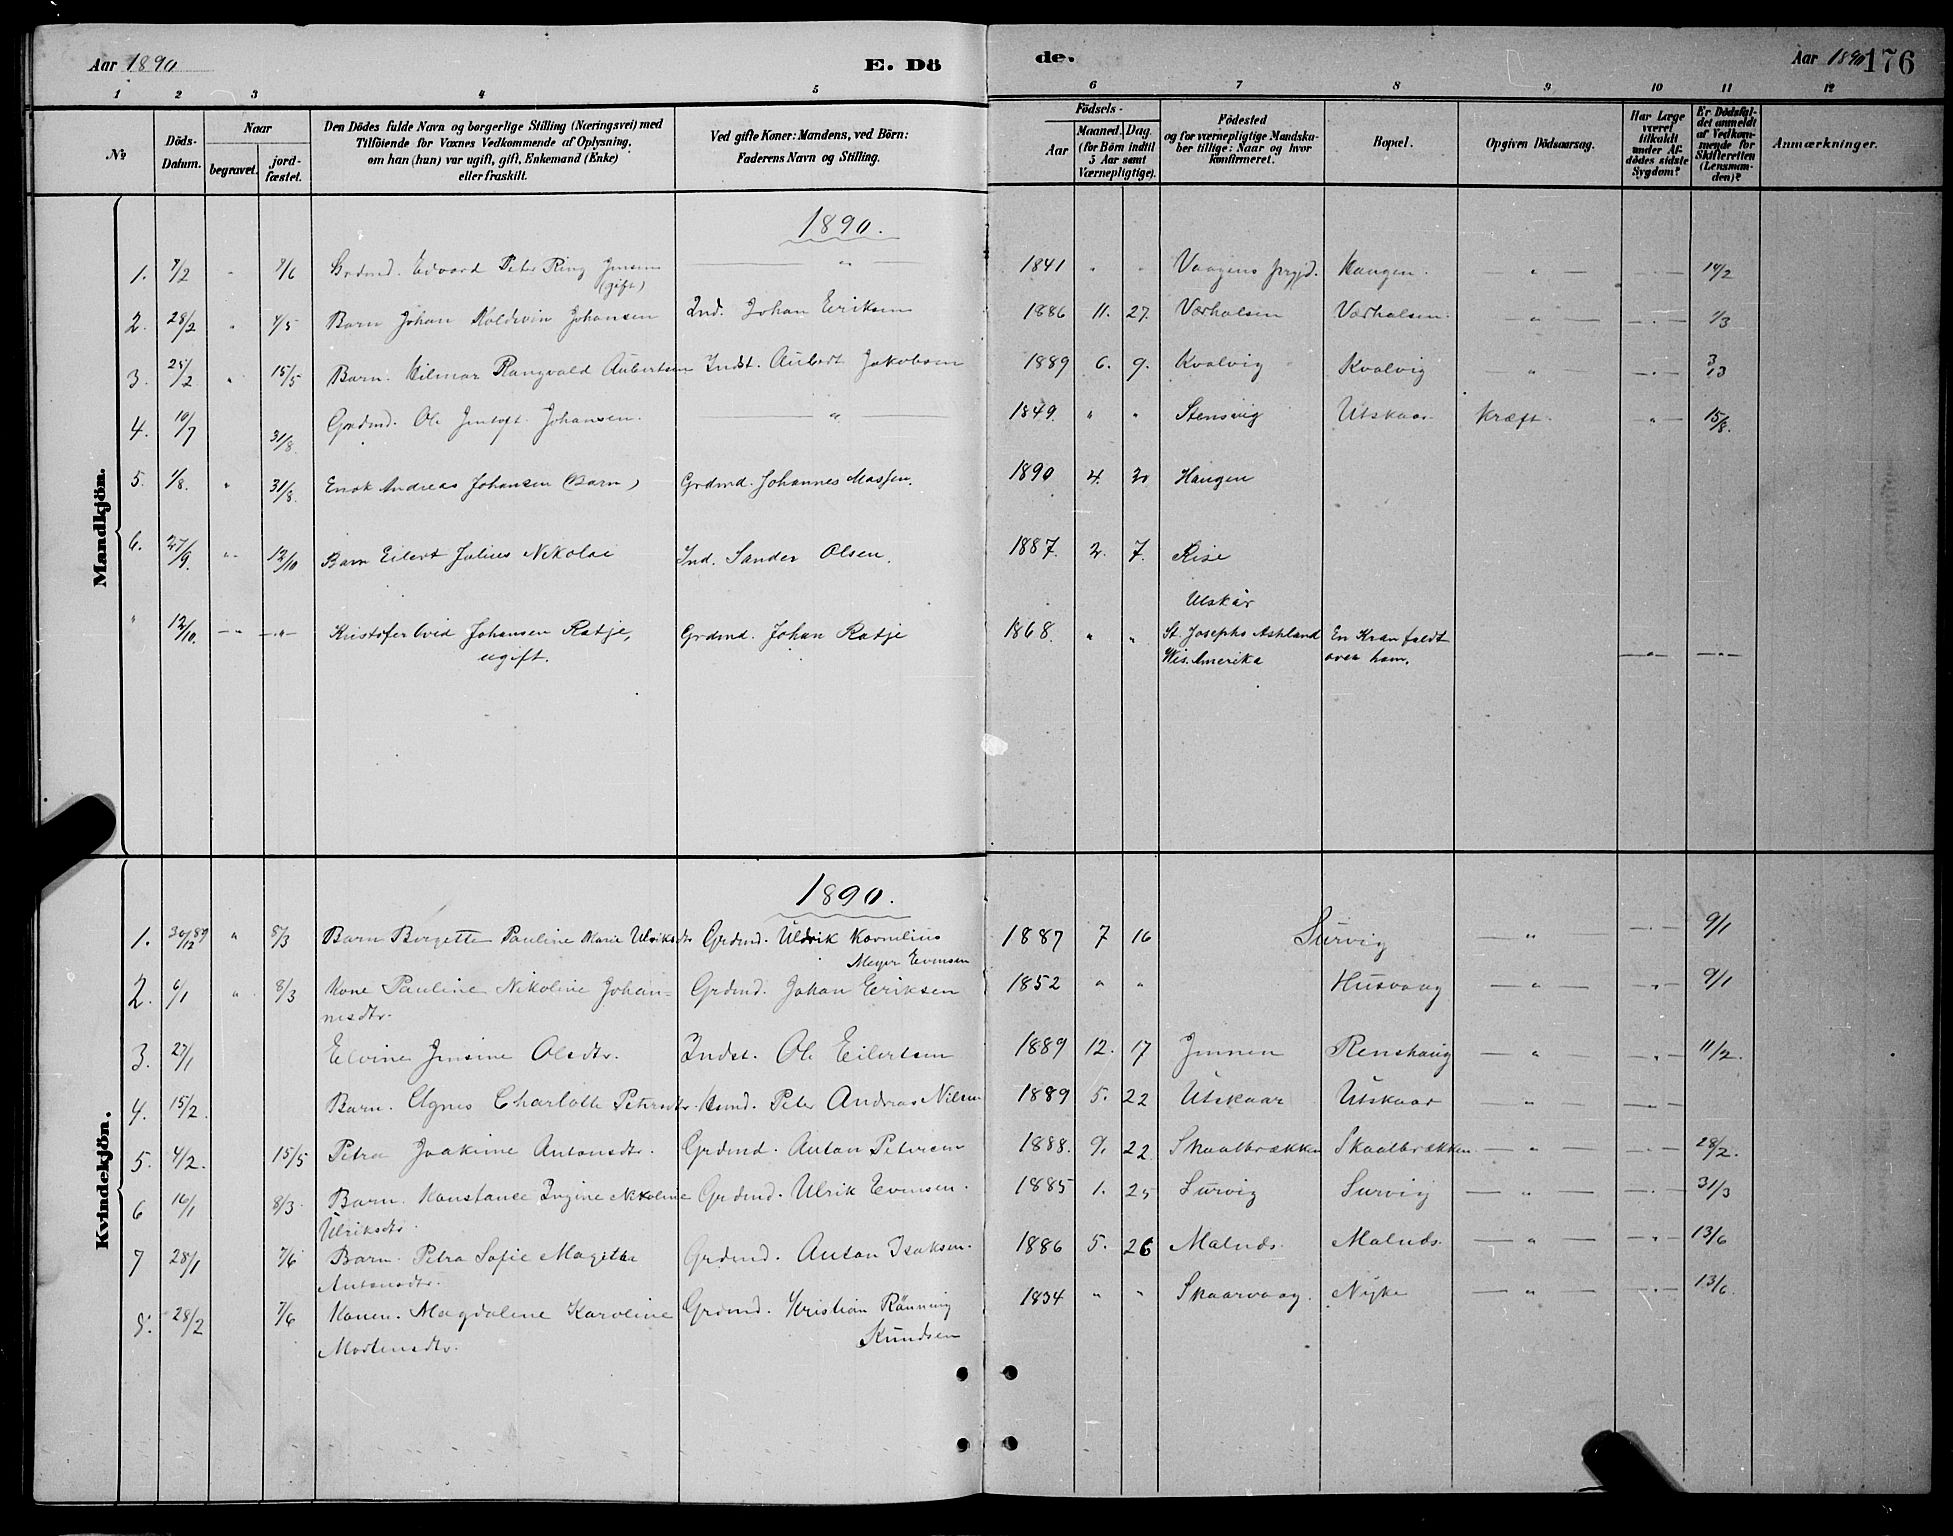 Aar 1890
E. Dö
de.
Aar 1890 176
1 2 3 4 5 6 7 8 9 10 11 12
No
Döds-Datum.
Naar
begravet.
jord-fæstet.
Den Dödes fulde Navn og borgerlige Stilling (Næringsvei) med
Tilföiende for Voxnes Vedkommende af Oplysning,
om han (hun) var ugift, gift, Enkemand (Enke)
eller fraskilt.
Ved gifte Koner: Mandens, ved Börn:
Faderens Navn og Stilling.
Födsels-
Aar
Maaned. Dag.
(for Börn indtil
5 Aar samt
Værnepligtige).
Födested
og for værnepligtige Mandska-
ber tillige: Naar og hvor
Konfirmeret.
Bopæl.
Opgiven Dödsaarsag.
Har Læge
været
tilkaldt
under Af-
dödes sidste
Sygdom?
Er Dödsfal-
det anmeldt
af Vedkom-
mende for
Skifteretten
(Lensman-
den)?
Anmærkninger.
Mandkjön.
1890.
1. 7/2 " 7/6 Grdmd. Edvard Peter Ring Jensen (gift) — " — 1841 " " Vaagens prgjd. Haugen. — " — — " — 14/2
2. 28/2 " 4/5 Barn Johan Koldevin Johansen Ind. Johan Eriksen 1886 11. 27. Værhalsen Værhalsen. — " — — " — 1/3
3. 25/2 " 15/5 Barn. Hilmar Rangvald Aubertsen Indst. Aubert Jakobsen 1889 6. 9. Kvalvig Kvalvig — " — — " — 3/13
4. 10/7 31/8 Grdmd. Ole Jentoft Johansen. — " — 1849. " " Stensvig Utskaar Kræft. — " — 15/8.
5. 1/8. " 31/8 Enok Andreas Johansen (Barn) Grdmd. Johannes Massen. 1890 4. 30 Haugen
6. 27/9. " 12/10 Barn Eilert Julius Nikolai Ind. Sander Olsen. 1887. 2. 7. Rise
" 12/10. — " — — " — Kristofer Ovid Johansen Ratje, ugift. Grdmd. Johan Ratje 1868. " " Utskär St. Josephs Ashland Wis. Amerika En Kran faldt over ham. — " — — " —
Kvindekjön.
1890.
1. 30/12 89 " 8/3 Barn Birgette Pauline Marie Ulriksdtr Grdmd. Uldrik Kornelius Meyer Evensen 1887 7 16 Survig — " — — " — 9/1
2. 6/1 " 8/3 Kone Pauline Nikoline Johannesdtr. Grdmd. Johan Eriksen 1852 " " Husvaag — " — — " — 9/1
3. 27/1 Elvine Jensine Olsdtr. Indst. Ole Eilertsen 1889 12. 17 Jennen Renshaug — " — — " — 11/2.
4. 15/2. Barn. Agnes Charlotte Petersdtr. Husmd. Peter Andreas Nilsen 1889 5. 22 Utskaar Utskaar — " — — " —
5. 4/2. 15/5 Petra Joakime Antonsdtr. Grdmd. Anton Petersen 1888. 9. 22 Skaalbrækken Skaalbrækken — " — — " — 28/2.
6 16/1 8/3 Barn. Konstance Ingine Nikoline Ulriksdtr. Grdmd. Ulrik Evensen. 1885 1. 25 Survig Survig — " — — " — 31/3
7 28/1 7/6 Barn. Petra Sofie Magitha Antonsdtr. Grdmd. Anton Isaksen. 1886 5. 26 Malnds. Malnds. — " — — " — 13/6
8. 28/2 7/6 Konen. Magdalene Karoline Mortensdtr. Grdmd. Kristian Rönning Kundsen 1834 " " Skaarvaag. Nyke — " — — " — 13/6.